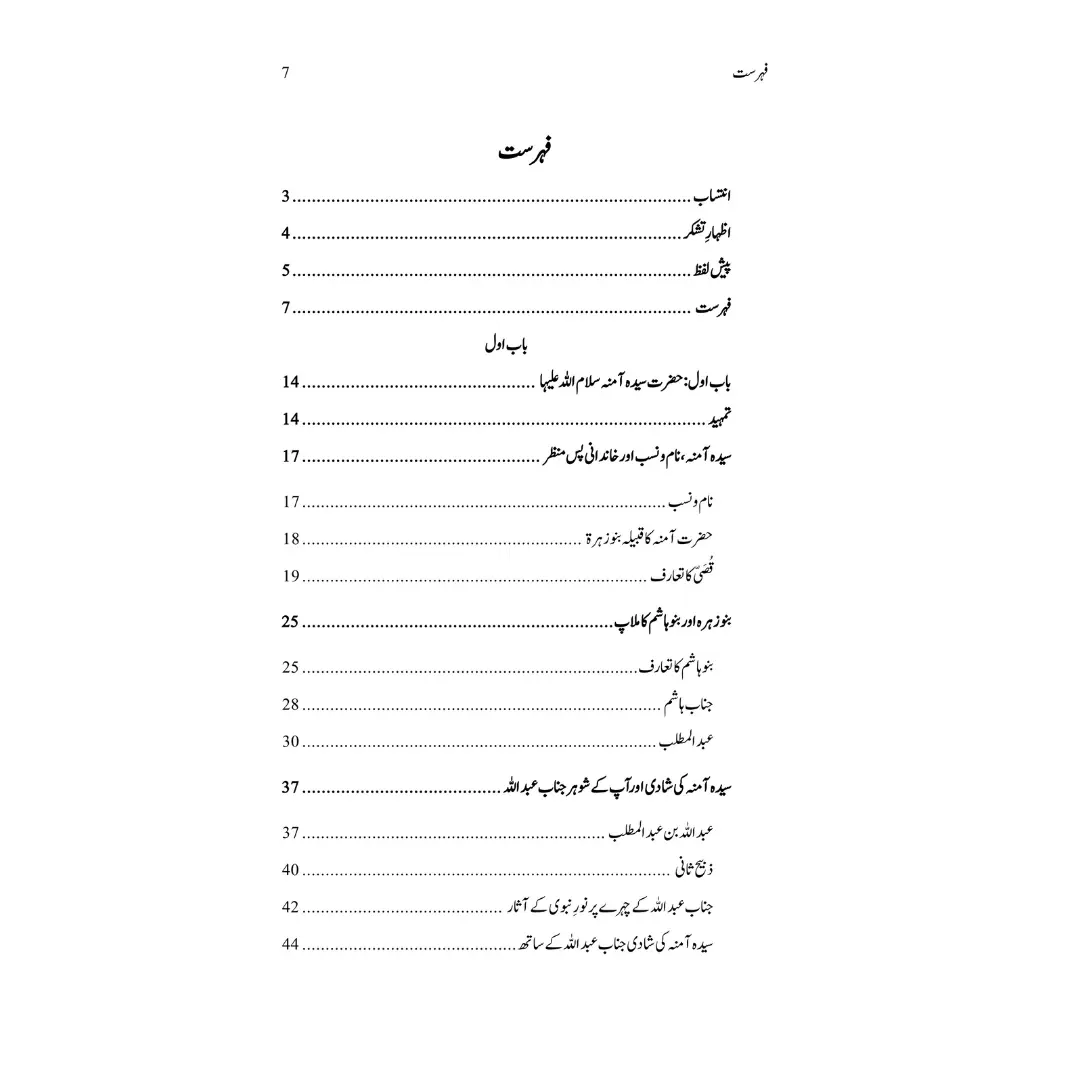 فہرست 7
فہرست
انتساب ........ 3
اظہارِ تشکر ........ 4
پیش لفظ ........ 5
فہرست ........ 7
باب اول
باب اول: حضرت سیدہ آمنہ سلام اللہ علیہا ........ 14
تمہید ........ 14
سیدہ آمنہ، نام و نسب اور خاندانی پس منظر ........ 17
نام و نسب ........ 17
حضرت آمنہ کا قبیلہ بنو زھرۃ ........ 18
قُصَیّ کا تعارف ........ 19
بنو زہرہ اور بنو ہاشم کا ملاپ ........ 25
بنو ہاشم کا تعارف ........ 25
جناب ہاشم ........ 28
عبد المطلب ........ 30
سیدہ آمنہ کی شادی اور آپ کے شوہر جناب عبد اللہ ........ 37
عبد اللہ بن عبد المطلب ........ 37
ذبیح ثانی ........ 40
جناب عبد اللہ کے چہرے پر نورِ نبوی کے آثار ........ 42
سیدہ آمنہ کی شادی جناب عبد اللہ کے ساتھ ........ 44